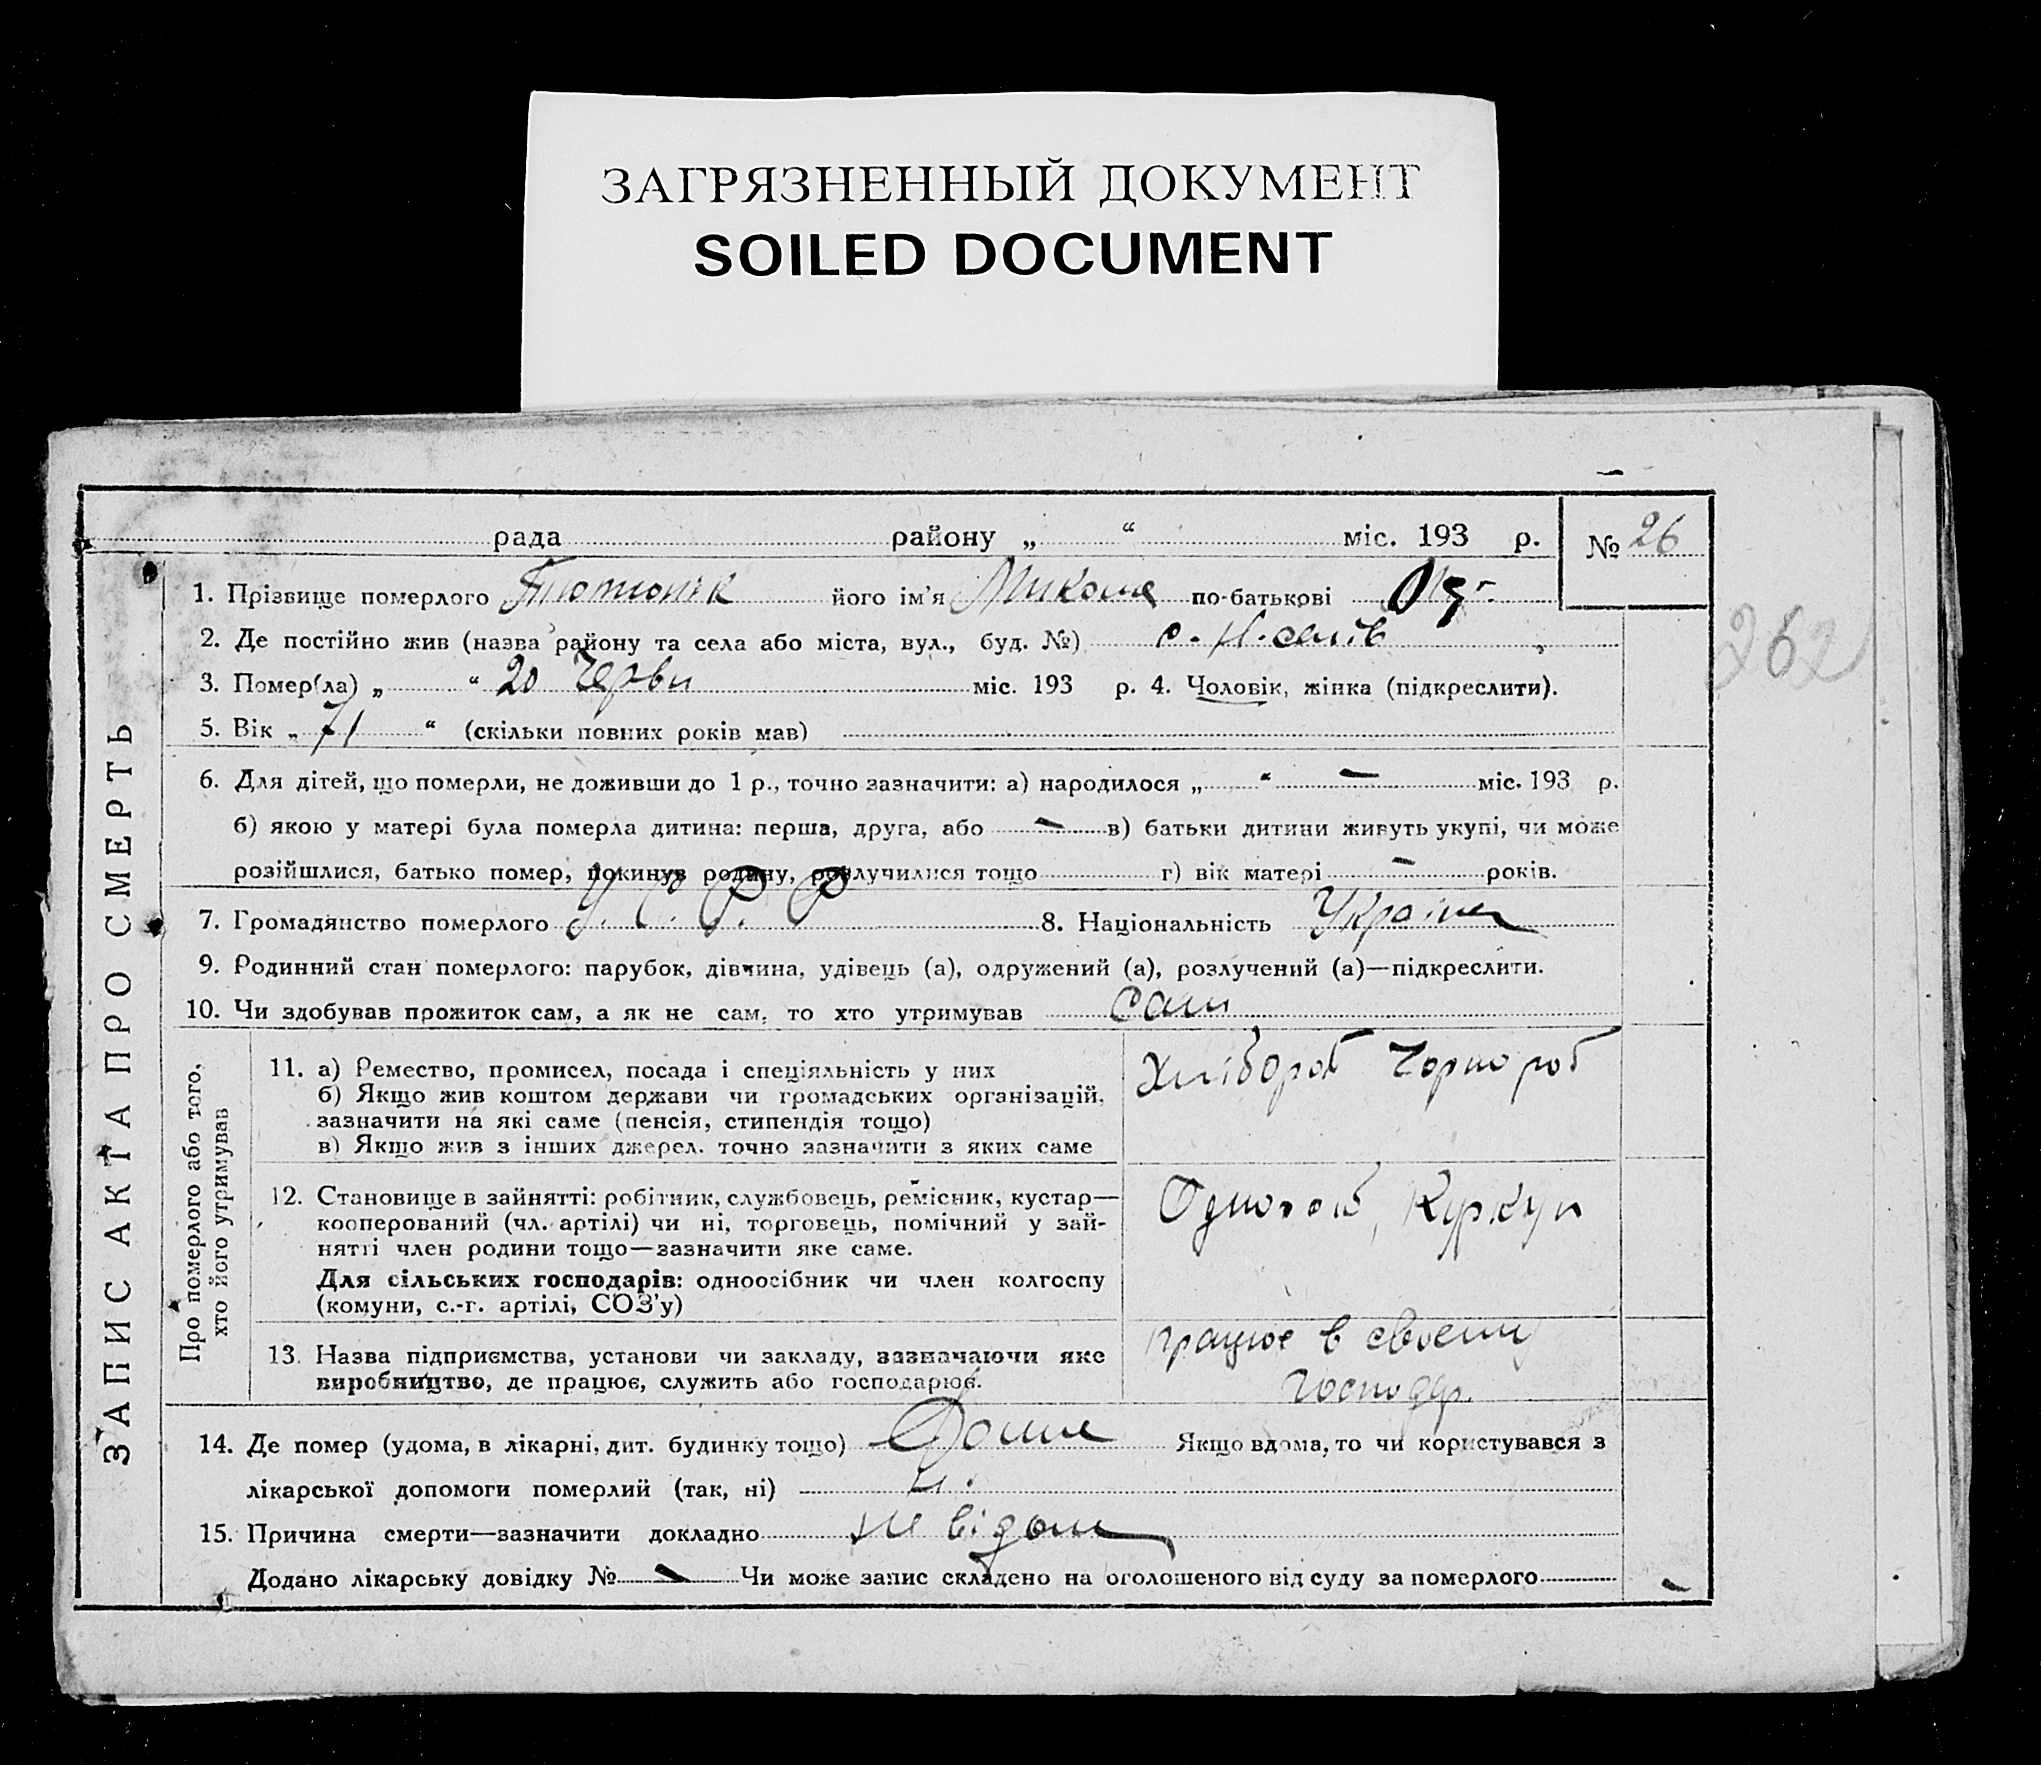 ЗАГРЯЗНЕННЫЙ ДОКУМЕНТ
SOILED DOCUMENT
рада району „ “ міс. 193 р. № 26
262
ЗАПИС АКТА ПРО СМЕРТЬ
1. Прізвище померлого Тютюник його ім'я Микола по-батькові
2. Де постійно жив (назва району та села або міста, вул., буд. №) с.
3. Помер(ла) „ “ 20 Червн міс. 193 р. 4. Чоловік, жінка (підкреслити).
5. Вік „ 71 “ (скільки повних років мав)
6. Для дітей, що померли, не доживши до 1 р., точно зазначити: а) народилося „ “ — міс. 193 р.
б) якою у матері була померла дитина: перша, друга, або — в) батьки дитини живуть укупі, чи може
розійшлися, батько помер, покинув родину, розлучилися тощо г) вік матері — років.
7. Громадянство померлого У. С. Р. Р 8. Національність
9. Родинний стан померлого: парубок, дівчина, удівець (а), одружений (а), розлучений (а)—підкреслити.
10. Чи здобував прожиток сам, а як не сам, то хто утримував Сам
Про померлого або того,
хто його утримував
11. а) Ремество, промисел, посада і спеціяльність у них
б) Якщо жив коштом держави чи громадських організацій,
зазначити на які саме (пенсія, стипендія тощо)
в) Якщо жив з інших джерел, точно зазначити з яких саме
Хлібороб Чорнороб
12. Становище в зайнятті: робітник, службовець, ремісник, кустар—
кооперований (чл. артілі) чи ні, торговець, помічний у зай-
нятті член родини тощо—зазначити яке саме.
Для сільських господарів: одноосібник чи член колгоспу
(комуни, с.-г. артілі, СОЗ'у)
Куркул
13. Назва підприємства, установи чи закладу, зазначаючи яке
виробництво, де працює, служить або господарює.
працює в своєму
господар.
14. Де помер (удома, в лікарні, дит. будинку тощо) Дома Якщо вдома, то чи користувався з
лікарської допомоги померлий (так, ні) н.
15. Причина смерти—зазначити докладно не відома
Додано лікарську довідку № — Чи може запис складено на оголошеного від суду за померлого —